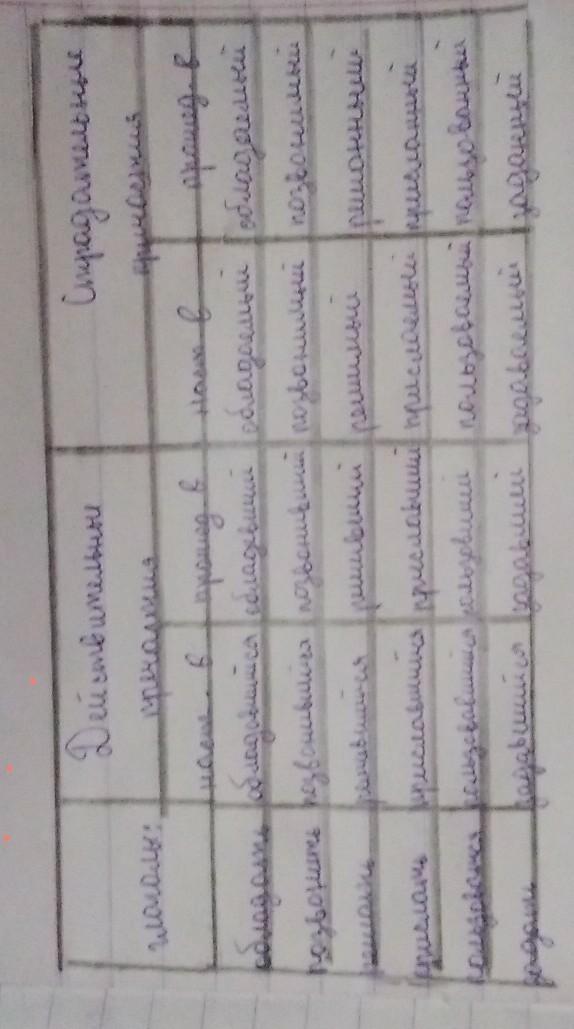 Действительные Страдательные
глаголы: причастия причастия
наст. в прошед в наст в прошед в
обладать обладавшийся обладавший обладаемый обладаемый
позвонить позвонившийся позвонивший позвонимый позвонимый
решать решившийся решивший решимый
прислать приславшийся приславший прислаемый присланный
пользоваться пользовавшийся пользовавший пользоваемый пользованный
задать задавшийся задавший задаваемый заданный